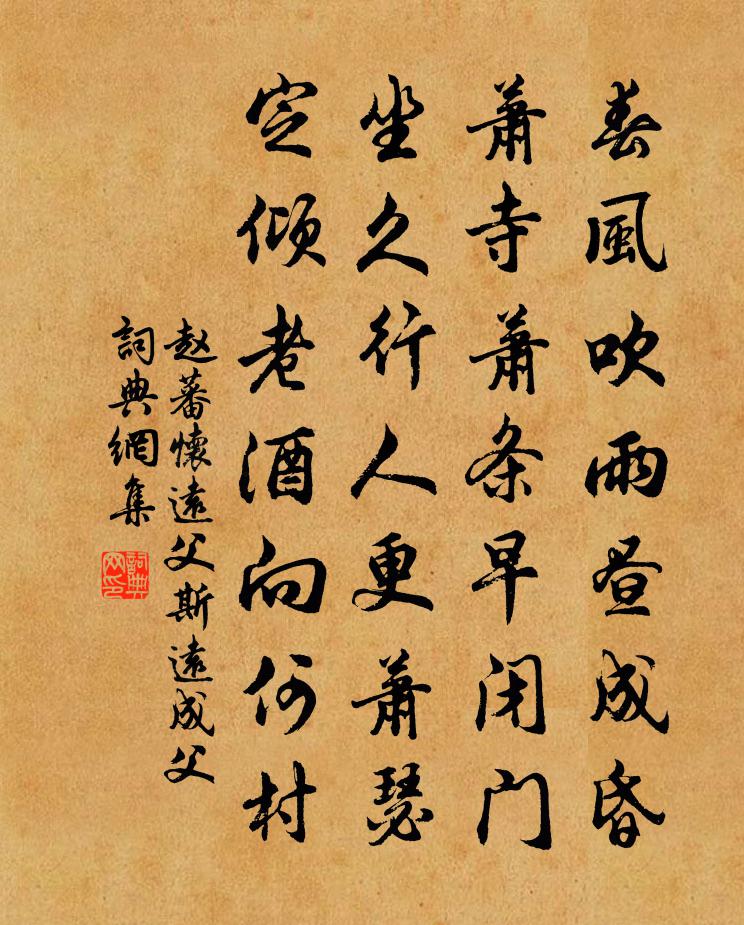 春風吹雨昼成昏
蕭寺蕭条早闭门
坐久行人更蕭瑟
定倾老酒向何村
赵蕃懷遠父斯遠成父
詞典網集
詞典
网印